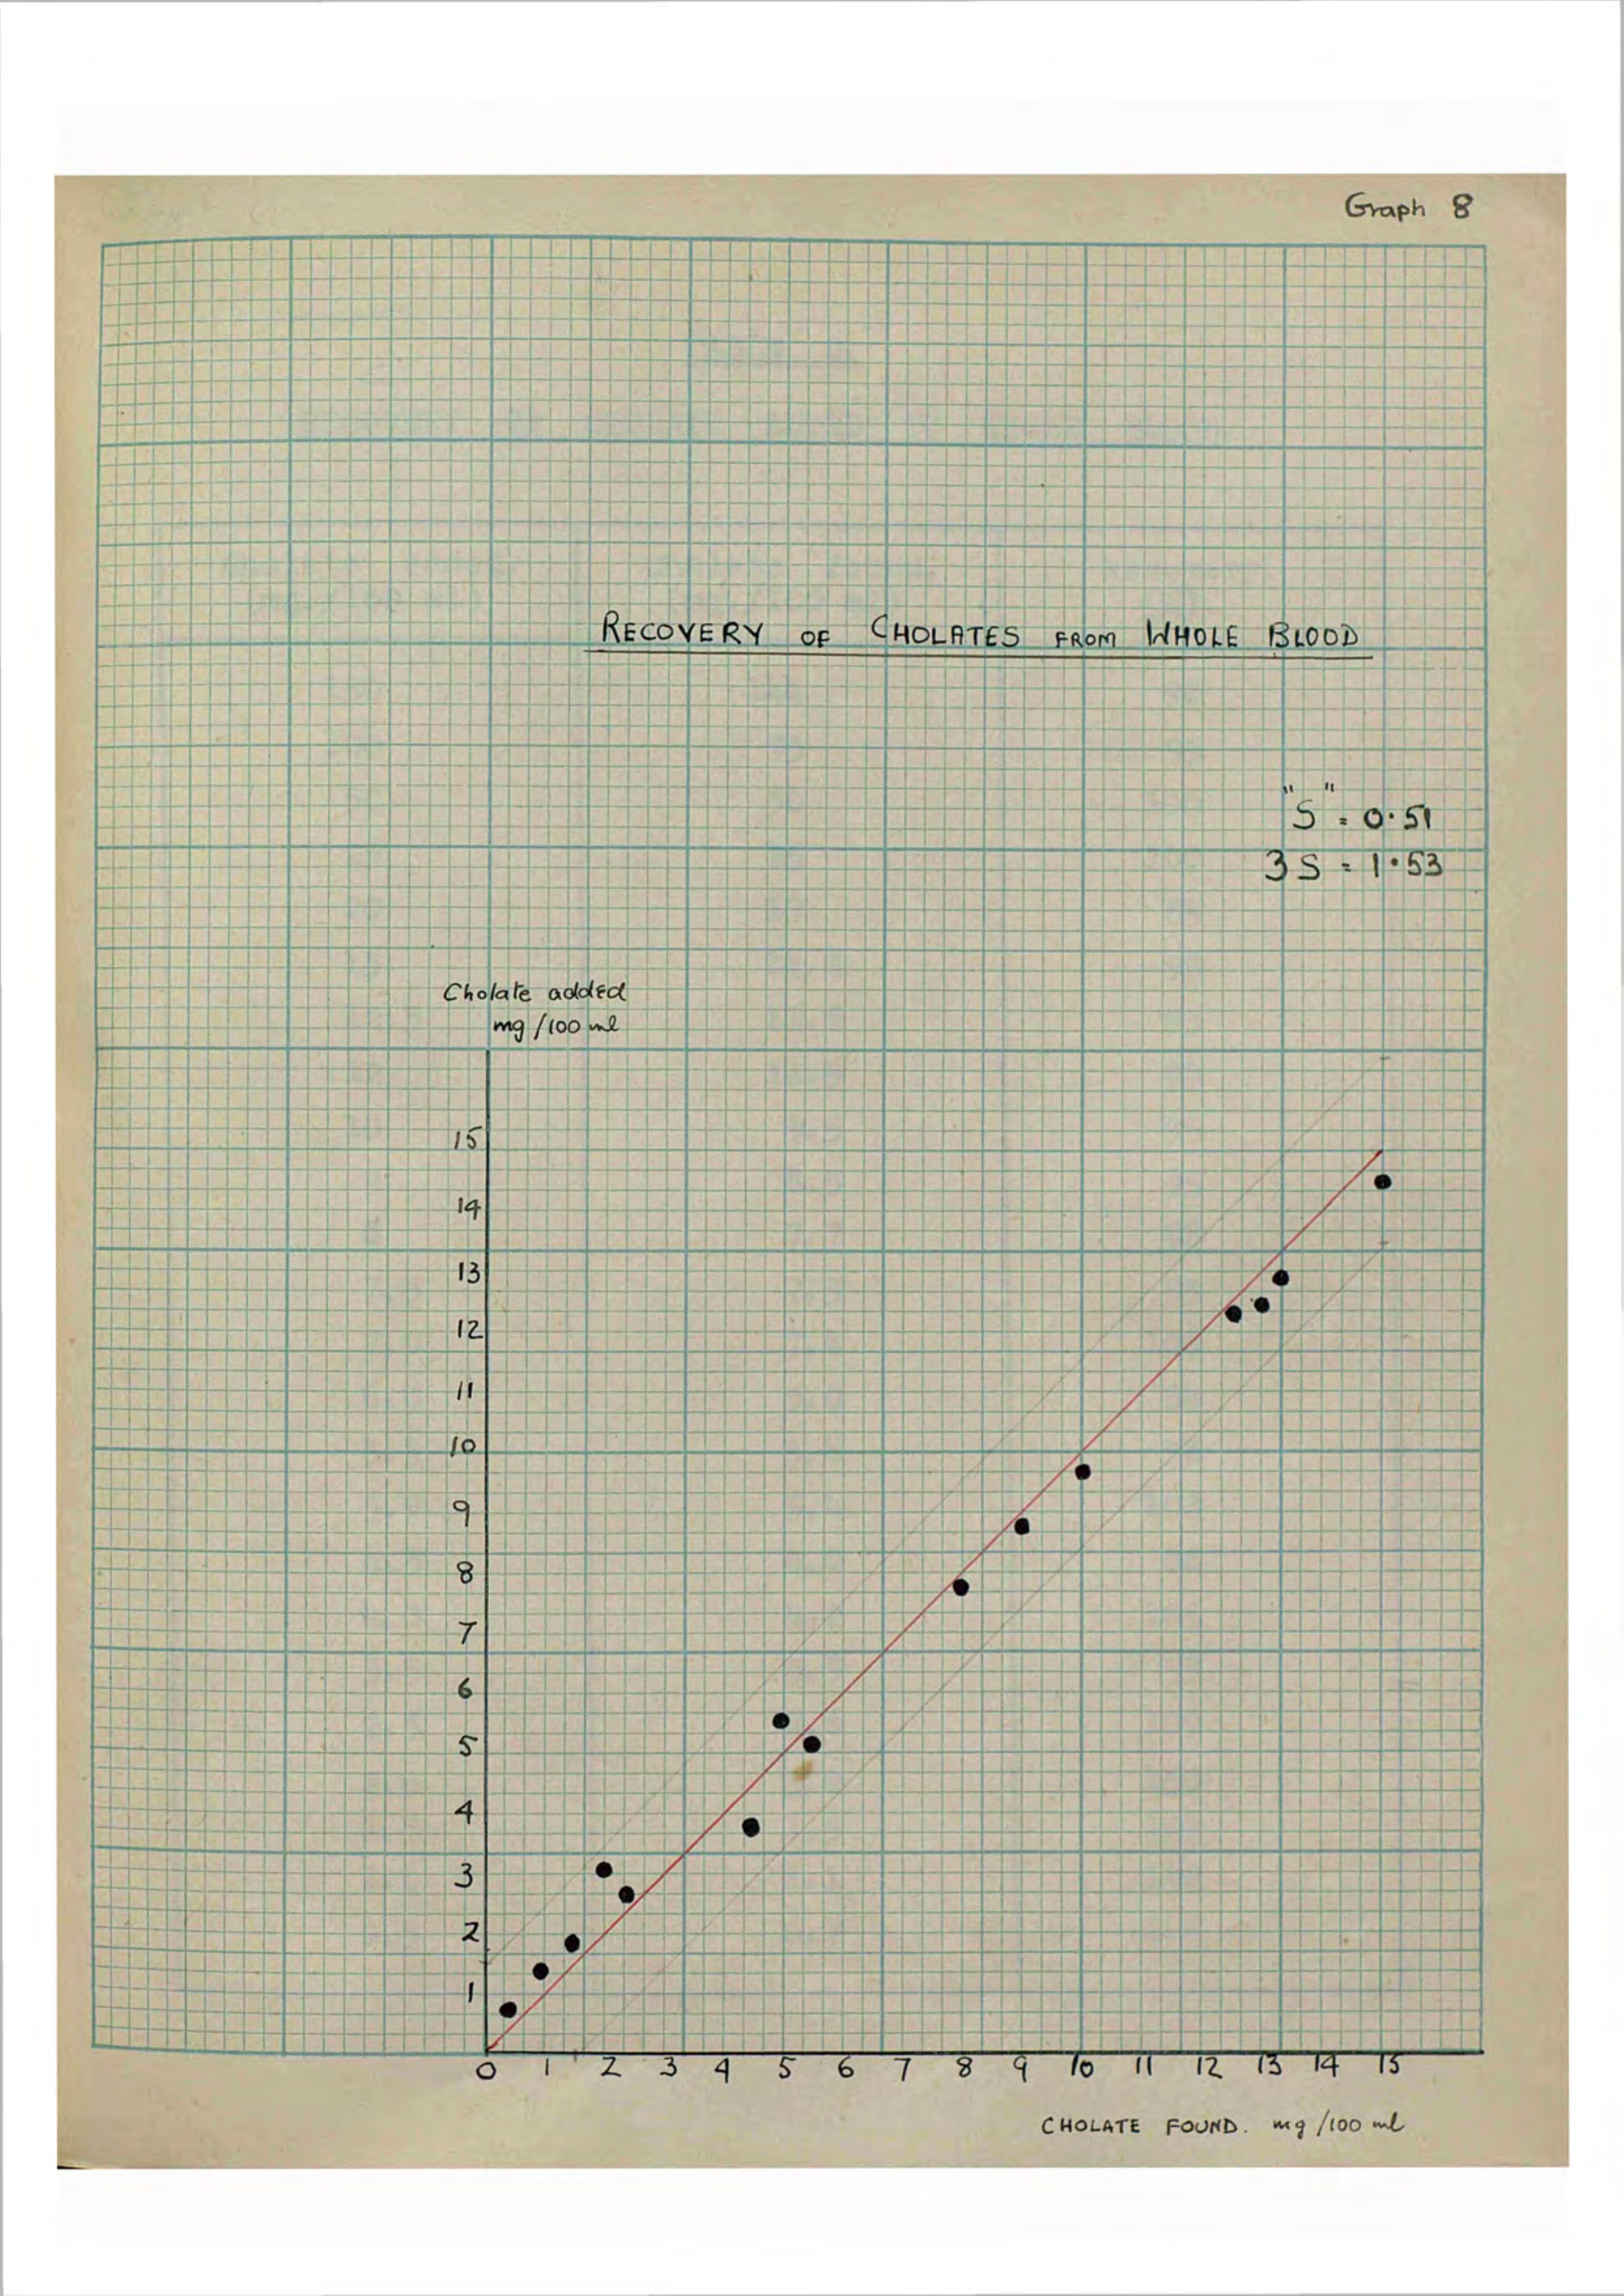 Graph 8
RECOVERY OF CHOLATES FROM WHOLE BLOOD
"S" = 0.51
3 S = 1.53
Cholate added
mg/100 ml
15
14
13
12
11
10
9
8
7
6
5
4
3
2
1
0 1 2 3 4 5 6 7 8 9 10 11 12 13 14 15
CHOLATE FOUND. mg/100 ml